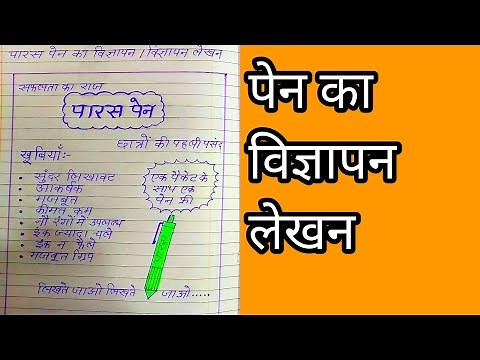 पारस पेन का विज्ञापन । विज्ञापन लेखन
सफलता का राज
पारस पेन
छात्रों की पहली पसंद
खूबियाँ:-
सुंदर लिखावट
आकर्षक
मजबूत
कीमत कम
नौ रंगों में उपलब्ध
इंक ज्यादा चले
इंक न फैले
मजबूत ग्रिप
एक पैकेट के
साथ एक
पेन फ्री
लिखते जाओ लिखते जाओ.....
पेन का
विज्ञापन
लेखन